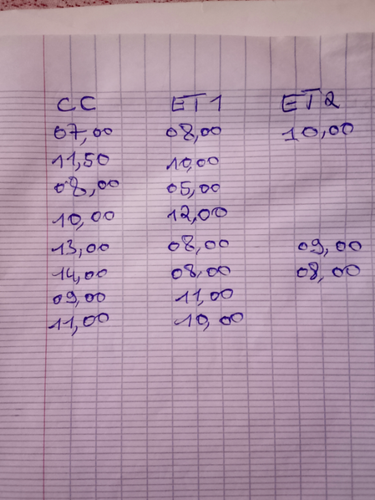 CC ET1 ET2
07,00 08,00 10,00
11,50 10,00
08,00 05,00
10,00 12,00
13,00 08,00 09,00
14,00 08,00 08,00
09,00 11,00
11,00 10,00